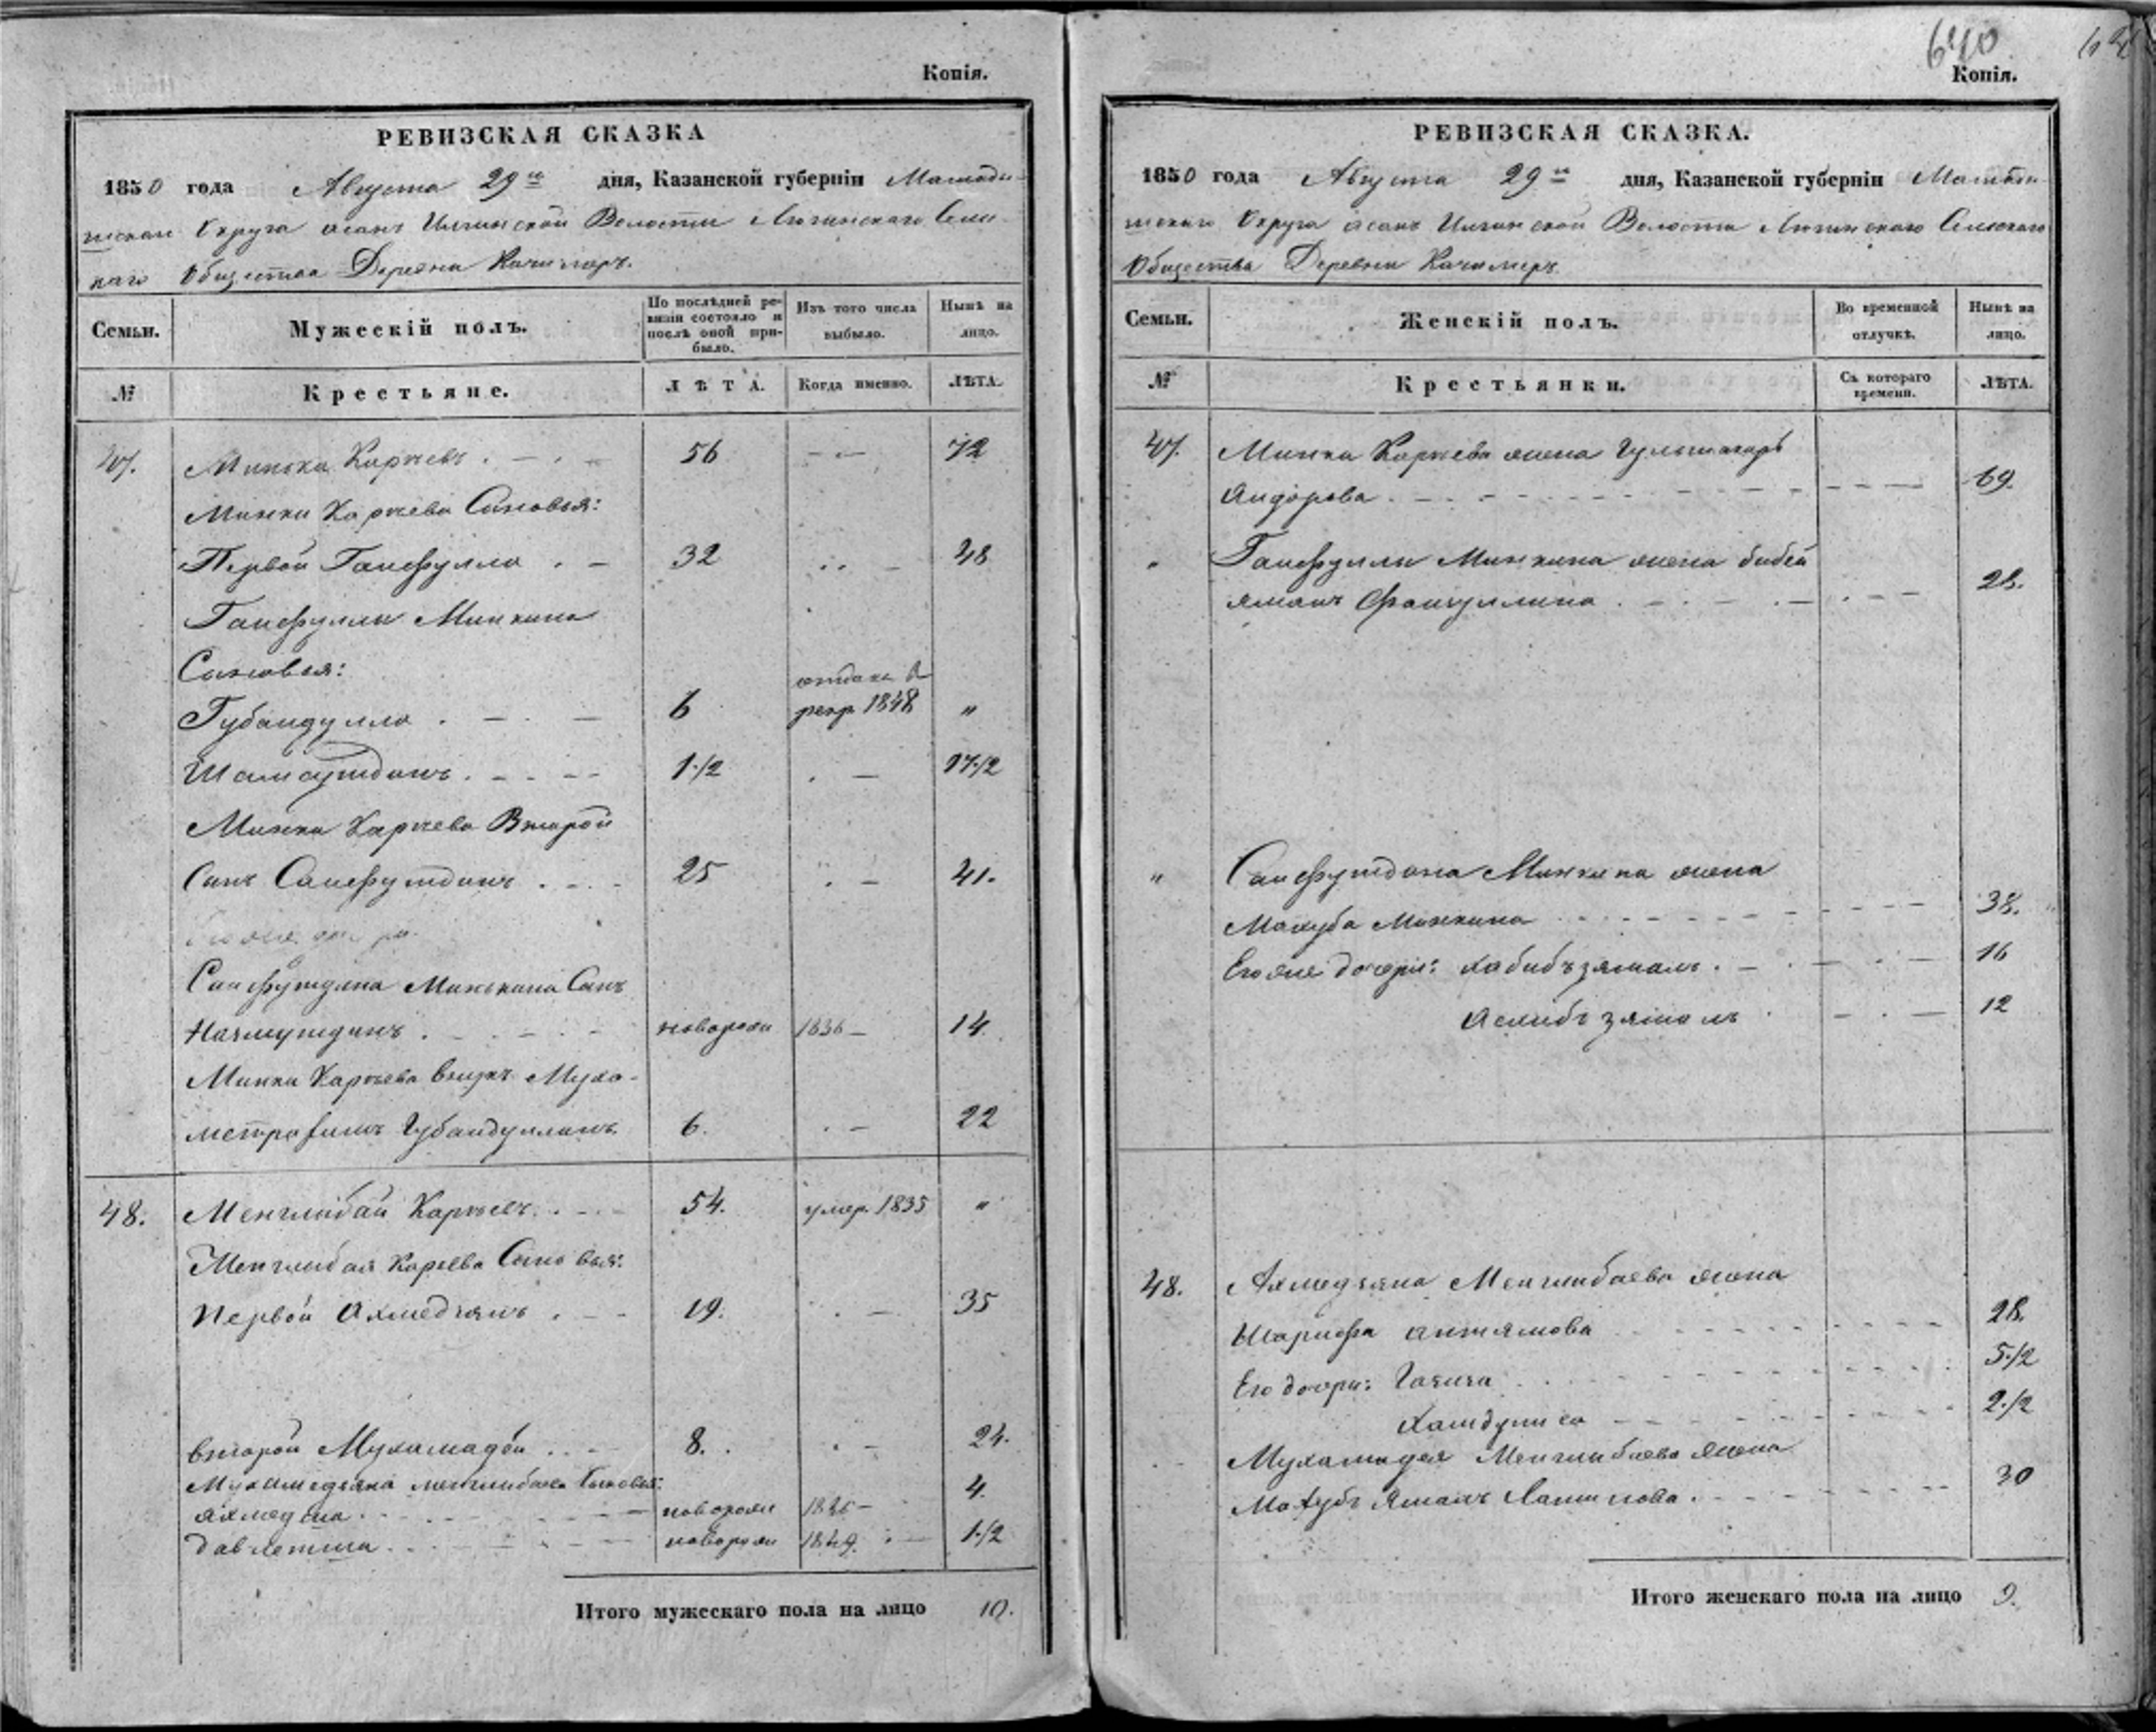 Копія.
РЕВИЗСКАЯ СКАЗКА
1850 года Августа 29го дня, Казанской губерніи Мамады-
шскаго Округа Асанъ Илгинской Волости Люгинскаго Сель-
скаго Общества Деревни Качимеръ.
Семьи. Мужескій полъ. По послѣдней ре-визіи состояло и послѣ оной при-было. Изъ того числа выбыло. Нынѣ на лицо.
№ Крестьяне. ЛѢТА. Когда именно. ЛѢТА.
47. Минька Карчевъ 56 72
Минки Карчева Сыновья:
Первой Гайфулла 32 48
Гайфуллы Минкина
Сыновья:
Губайдулла 6 отданъ в рекр. 1848 "
Шамсутдинъ 1/2 17/2
Минки Карчева Второй
Сынъ Сайфутдинъ 25 41.
Сайфутдина Минькина Сынъ
Назмутдинъ новорожд 1836 14.
Минки Карчева внукъ Муха-
метрафикъ Губайдуллинъ 6. 22
48. Менглибай Карчевъ 54. умер. 1835 "
Менглибая Карчева Сыновья:
Первой Ахмедзянъ 19. 35
второй Мухамадей 8. 24.
Мухамедзяна Менглибаева Сыновья:
Ахмедша новорожд 1846 4.
Давлетша новорожд 1849. 1/2
Итого мужескаго пола на лицо 10.
640
Копія.
РЕВИЗСКАЯ СКАЗКА.
1850 года Августа 29го дня, Казанской губерніи Мамады-
шскаго Округа Асанъ Илгинской Волости Люгинскаго Сельскаго
Общества Деревни Качимеръ
Семьи. Женскій полъ. Во временной отлучкѣ. Нынѣ на лицо.
№ Крестьянки. Съ котораго времени. ЛѢТА.
47. Минки Карчева жена Гульшагаръ
Яндорова 69.
" Гайфуллы Минкина жена Бибей
ямалъ Файзуллина 28.
" Сайфутдина Минкина жена
Махуба Минкина 38.
Его же дочери: Хабибъзямалъ 16
Асхибъзямалъ 12
48. Ахмедзяна Менглибаева жена
Шарифа Антямова 28.
Его дочери: Газиза 5/2
Хамдуниса 2/2
Мухамадея Менглибаева жена
Махубъ Ямалъ Латыпова 30
Итого женскаго пола на лицо 9.